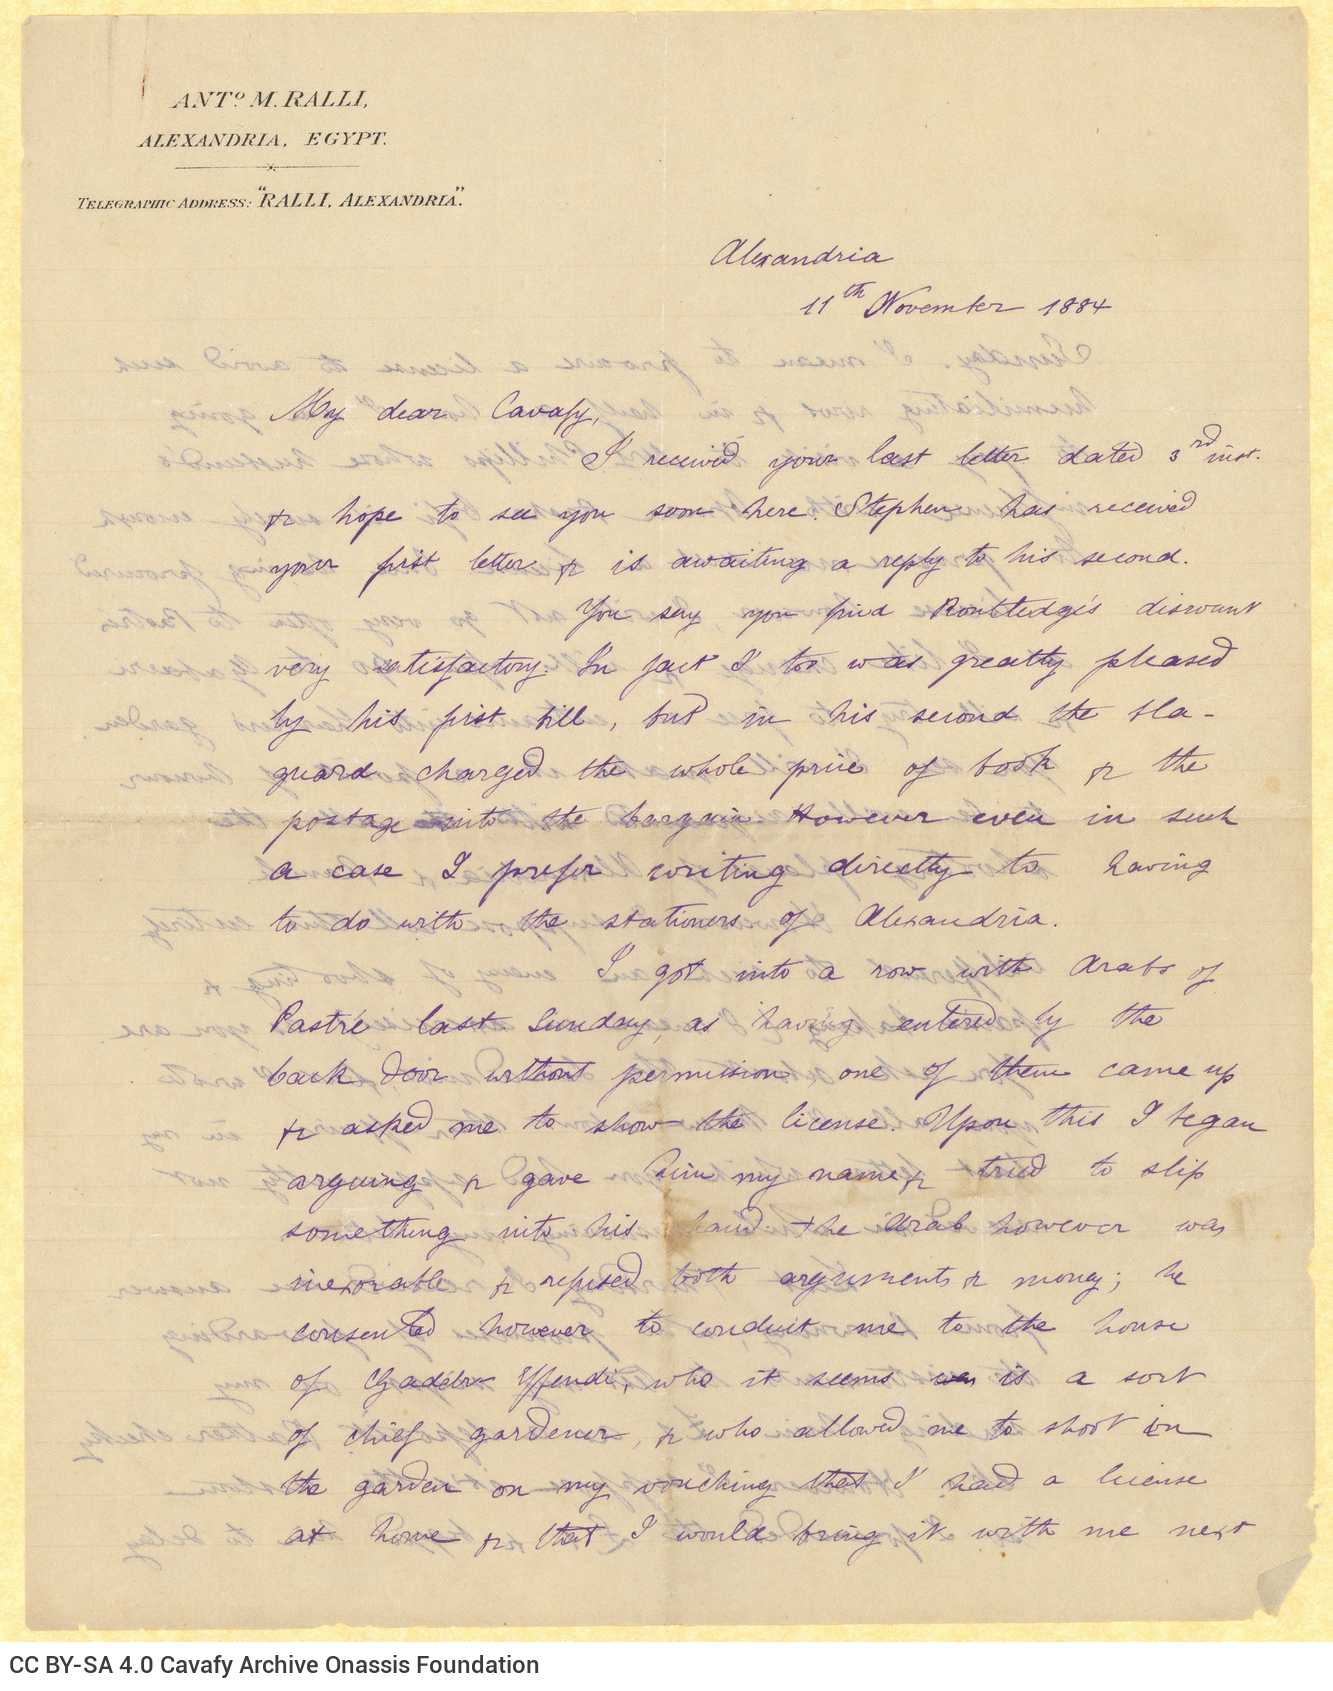 ANTº. M. RALLI,
ALEXANDRIA, EGYPT.
TELEGRAPHIC ADDRESS: "RALLI, ALEXANDRIA".
Alexandria
11th November 1884
My dear Cavafy,
I received your last letter dated 3rd inst.
& hope to see you soon here. Stephen has received
your first letter & is awaiting a reply to his second.
You say you find Routledge's discount
very satisfactory. In fact I too was greatly pleased
by his first bill, but in his second the bla-
guard charged the whole price of book & the
postage into the bargain. However even in such
a case I prefer writing directly to having
to do with the stationers of Alexandria.
I got into a row with Arabs of
Pastré last Sunday, as having entered by the
back door without permission one of them came up
& asked me to show the license. Upon this I began
arguing & gave him my name & tried to slip
something into his hand the Arab however was
inexorable & refused both arguments & money; he
consented however to conduct me to the house
of Effendi, who it seems is a sort
of chief gardener, & who allowed me to shoot in
the garden on my vouching that I had a license
at home & that I would bring it with me next
CC BY-SA 4.0 Cavafy Archive Onassis Foundation